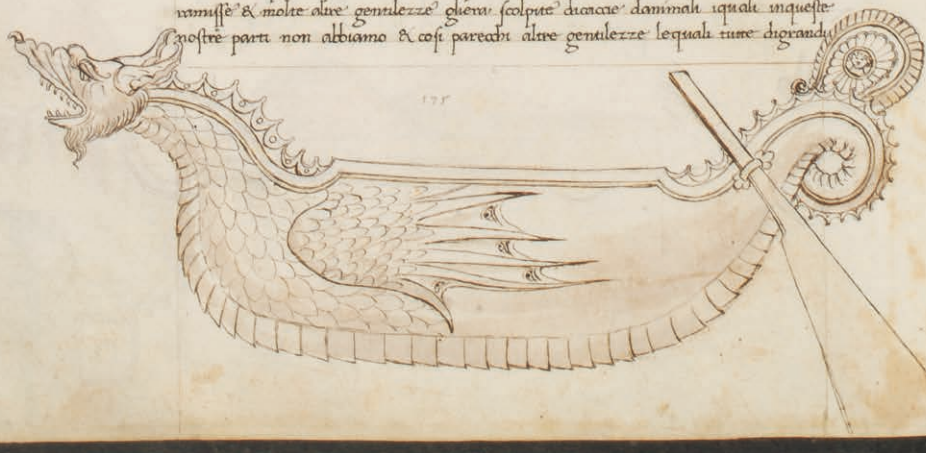 ramisse & molte altre gentilezze ghera scolpite dicacie danimali iquali inqueste
nostre parti non abbiamo & cosi parecchi altre gentilezze lequali tutte digrandu
175